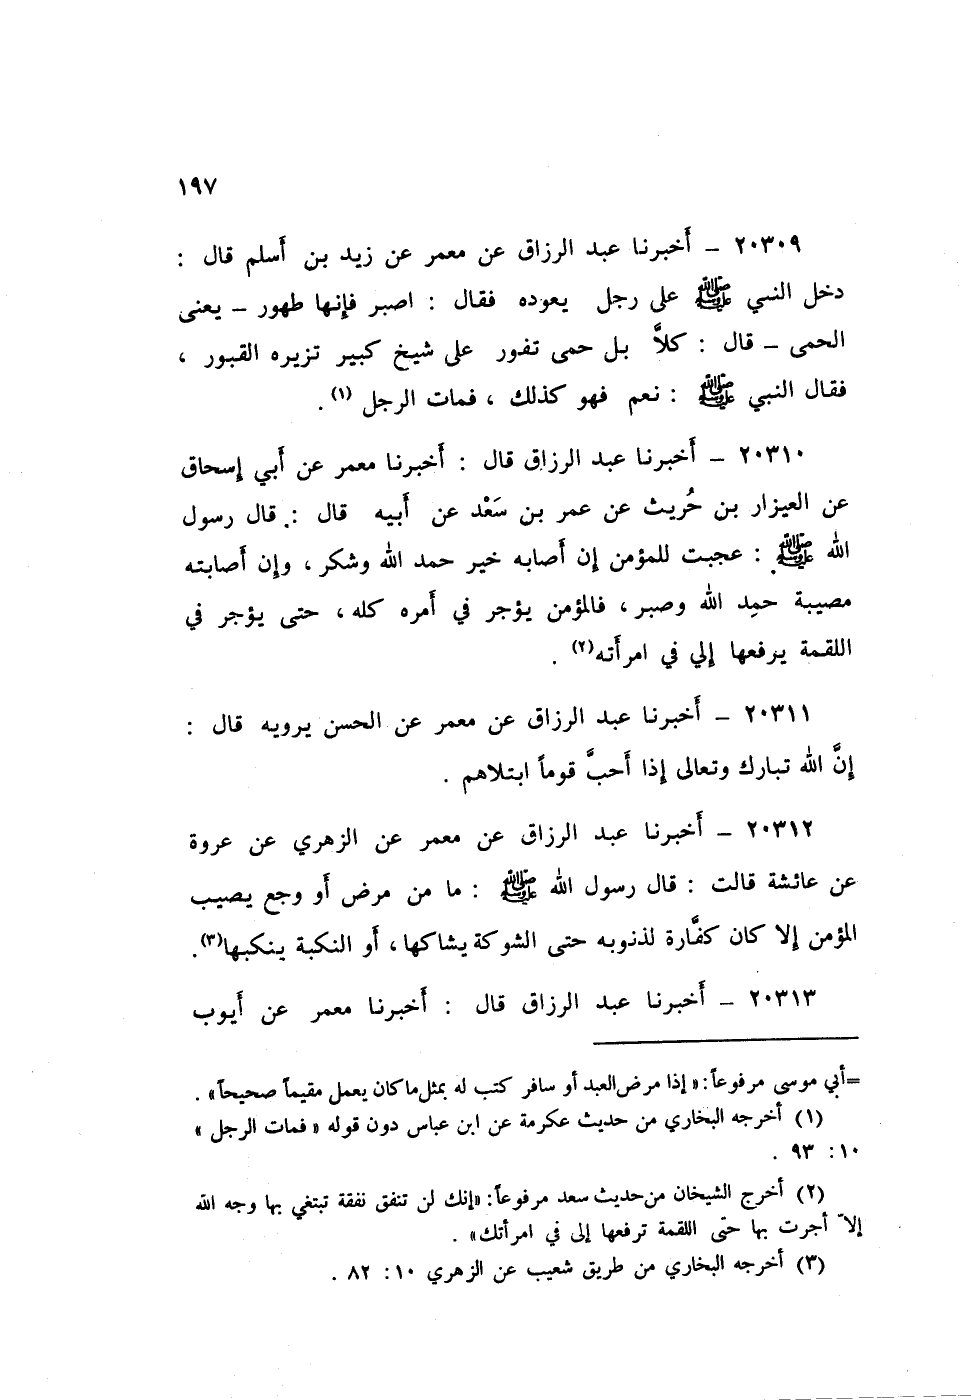 ١٩٧
٢٠٣٠٩ ـ أَخبرنا عبد الرزاق عن معمر عن زيد بن أَسلم قال :
دخل النبي ﷺ على رجل يعوده فقال : اصبر فإنها طهور ـ يعنى
الحمى ـ قال : كلاَّ بل حمى تفور على شيخ كبير تزيره القبور ،
فقال النبي ﷺ : نعم فهو كذلك ، فمات الرجل (١) .
٢٠٣١٠ ـ أَخبرنا عبد الرزاق قال : أَخبرنا معمر عن أَبي إسحاق
عن العيزار بن حُريث عن عمر بن سَعْد عن أَبيه قال : قال رسول
الله ﷺ : عجبت للمؤمن إن أَصابه خير حمد الله وشكر ، وإن أَصابته
مصيبة حمِد الله وصبر ، فالمؤمن يؤجر في أَمره كله ، حتى يؤجر في
اللقمة يرفعها إلي في امرأَته(٢) .
٢٠٣١١ ـ أَخبرنا عبد الرزاق عن معمر عن الحسن يرويه قال :
إنَّ الله تبارك وتعالى إذا أَحبَّ قوماً ابتلاهم .
٢٠٣١٢ ـ أَخبرنا عبد الرزاق عن معمر عن الزهري عن عروة
عن عائشة قالت : قال رسول الله ﷺ : ما من مرض أَو وجع يصيب
المؤمن إلا كان كفَّارة لذنوبه حتى الشوكة يشاكها ، أَو النكبة ينكبها(٣).
٢٠٣١٣ ـ أَخبرنا عبد الرزاق قال : أَخبرنا معمر عن أَيوب
=أبي موسى مرفوعاً: «إذا مرض العبد أو سافر كتب له بمثل ما كان يعمل مقيماً صحيحاً» .
(١) أخرجه البخاري من حديث عكرمة عن ابن عباس دون قوله «فمات الرجل»
١٠: ٩٣ .
(٢) أخرج الشيخان من حديث سعد مرفوعاً: «إنك لن تنفق نفقة تبتغي بها وجه الله
إلاّ أجرت بها حتّى اللقمة ترفعها إلى في امرأتك» .
(٣) أخرجه البخاري من طريق شعيب عن الزهري ١٠: ٨٢ .